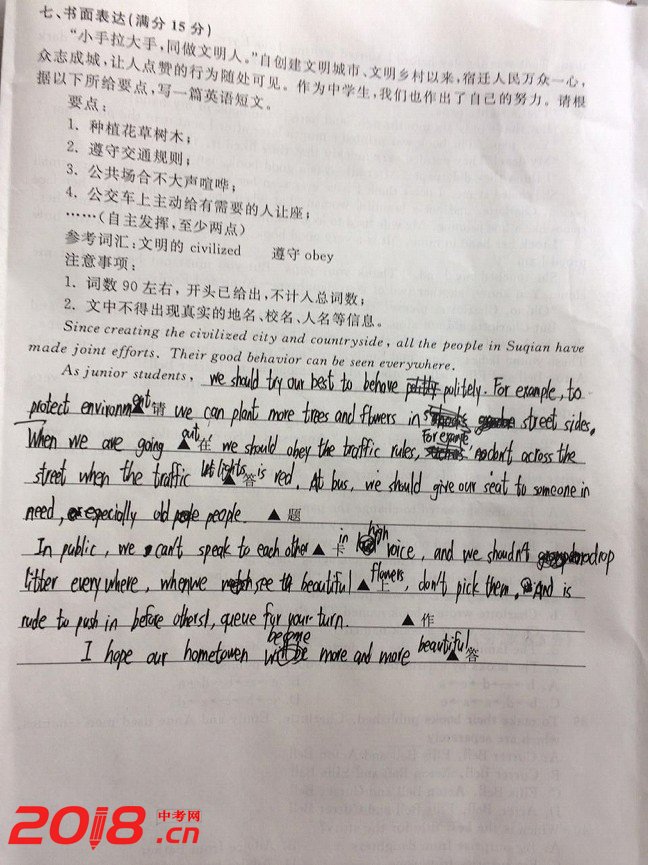 七、书面表达(满分 15 分)
“小手拉大手,同做文明人。”自创建文明城市、文明乡村以来,宿迁人民万众一心,
众志成城,让人点赞的行为随处可见。作为中学生,我们也作出了自己的努力。请根
据以下所给要点,写一篇英语短文。
要点:
1. 种植花草树木;
2. 遵守交通规则;
3. 公共场合不大声喧哗;
4. 公交车上主动给有需要的人让座;
……(自主发挥,至少两点)
参考词汇:文明的 civilized 遵守 obey
注意事项:
1. 词数 90 左右,开头已给出,不计入总词数;
2. 文中不得出现真实的地名、校名、人名等信息。
Since creating the civilized city and countryside, all the people in Suqian have
made joint efforts. Their good behavior can be seen everywhere.
As junior students, we should try our best to behave politely. For example, to
protect environment ▲ 请 we can plant more trees and flowers in street sides.
When we are going out ▲ 在 we should obey the traffic rules, for example don't across the
street when the traffic lights ▲ 答 is red. At bus, we should give our seat to someone in
need, especially old people. ▲ 题
In public, we can't speak to each other ▲ 卡 in high voice, and we shoudn't drop
litter every where, when we see beautiful ▲ 上 flowers, don't pick them. And is
rude to push in before others, queue for your turn. ▲ 作
I hope our hometowen become more and more beautiful ▲ 答
2018 中考网 .cn